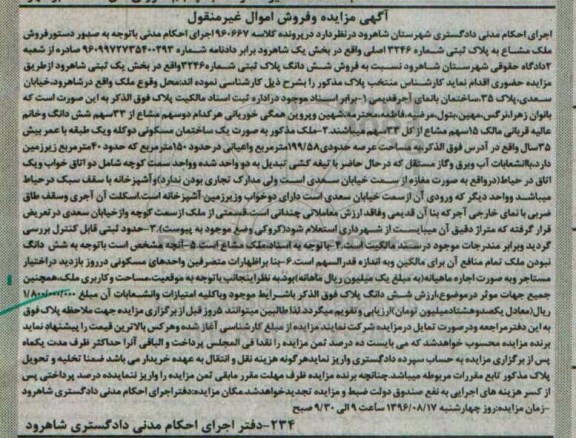 آگهی مزایده وفروش اموال غیرمنقول
اجرای احکام مدنی دادگستری شهرستان شاهرود درنظردارد درپرونده کلاسه ۹۶۰۶۶۷ اجرای احکام مدنی باتوجه به صدور دستورفروش
ملک مشاع به پلاک ثبتی شماره ۳۲۴۶ اصلی واقع در بخش یک شاهرود برابر دادنامه شماره ۹۶۰۹۹۷۲۷۳۵۴۰۰۲۹۳ صادره از شعبه
۲دادگاه حقوقی شهرستان شاهرود نسبت به فروش شش دانگ پلاک ثبتی شماره۳۲۴۶واقع در بخش یک ثبتی شاهرود ازطریق
مزایده حضوری اقدام نماید کارشناس منتخب پلاک مذکور را بشرح ذیل کارشناسی نموده اند:محل وقوع ملک واقع درشاهرود،خیابان
سعدی،پلاک ۳۵،ساختمان بانمای آجرقدیمی ۱-برابر اسناد موجود دراداره ثبت اسناد مالکیت پلاک فوق الذکر به این صورت است که
بانوان زهرا،نرگس،مهین،بتول،مرضیه،فاطمه،محترمه،شهین وپروین همگی خوریانی هرکدام دوسهم مشاع از ۳۳سهم شش دانگ وخانم
عالیه قربانی مالک ۱۵سهم مشاع از کل ۳۳سهم میباشند.۲-ملک مذکور به صورت یک ساختمان مسکونی دوکله ویک طبقه با عمر بیش
۳۵سال واقع در آدرس فوق الذکربه مساحت عرصه حدودی۱۹۹/۵۸مترمربع واعیانی درحدود ۱۵۰مترمربع که حدود ۴۰مترمربع زیرزمین
دارد،باانشعابات آب وبرق وگاز مستقل که درحال حاضر با تیغه کشی تبدیل به دو واحد شده وواحد سمت کوچه شامل دو اتاق خواب ویک
اتاق در حیاط(درواقع به صورت مغازه از سمت خیابان سعدی است ولی مدارک تجاری بودن ندارد)وآشپزخانه با سقف سبک درحیاط
میباشد وواحد دیگر که ورودی آن ازسمت خیابان سعدی است دارای دوخواب وزیرزمین آشپزخانه است.اسکلت آن آجری وسقف طاق
ضربی با نمای خارجی آجرکه بنا آن قدیمی وفاقد ارزش معاملاتی چندانی است.قسمتی از ملک ازسمت کوچه وازخیابان سعدی در تعریض
قرار گرفته که متراژ دقیق آن میبایست از شهرداری استعلام شود(کروکی وضع موجود به پیوست).۳-حدود ثبتی قابل کنترل بررسی
گردید وبرابر مندرجات موجود درسند مالکیت است.۴-باتوجه به اسناد،ملک مشاع است ۵-آنچه مشخص است باتوجه به شش دانگ
نبودن ملک تمام منافع آن برای مالکین وبه اندازه قدرالسهم است.۶-بنا براظهارات متصرفین واحدهای مسکونی درروز بازدید دراختیار
مستاجر وبه صورت اجاره ماهیانه(به مبلغ یک میلیون ریال ماهانه)بود.به نظراینجانب باتوجه به موقعیت،مساحت وکاربری ملک،همچنین
جمیع جهات موثر درموضوع،ارزش شش دانگ پلاک فوق الذکر باشرایط موجود وباکلیه امتیازات وانشعابات آن مبلغ
ریال(معادل یکصدوهشتادمیلیون تومان)ارزیابی وتقویم میگردد.لذا طالبین میتوانند ۵روز قبل از برگزاری مزایده جهت ملاحظه پلاک فوق
به این دفتر مراجعه ودرصورت تمایل درمزایده شرکت نمایند مزایده از مبلغ کارشناسی آغاز شده وهرکس بالاترین قیمت را پیشنهاد نماید
برنده مزایده محسوب خواهدشد که می بایست ده درصد ثمن مزایده را نقدا فی المجلس پرداخت و الباقی آنرا حداکثر ظرف مدت یکماه
پس از برگزاری مزایده به حساب سپرده دادگستری واریز نمایدهرگونه هزینه نقل و انتقال به عهده خریدار می باشد ضمنا تخلیه و تحویل
پلاک مذکور تابع مقررات مربوطه میباشد.چنانچه برنده مزایده ظرف مهلت مقرر مابقی ثمن مزایده را واریز ننمایدده درصد پرداختی پس
از کسر هزینه های اجرایی به نفع صندوق دولت ضبط و مزایده تجدیدخواهدشد.مکان مزایده:دفتراجرای احکام مدنی دادگستری شاهرود
-زمان مزایده:روز چهارشنبه ۱۳۹۶/۰۸/۱۷ ساعت ۹ الی ۹/۳۰ صبح
۲۳۴-دفتر اجرای احکام مدنی دادگستری شاهرود